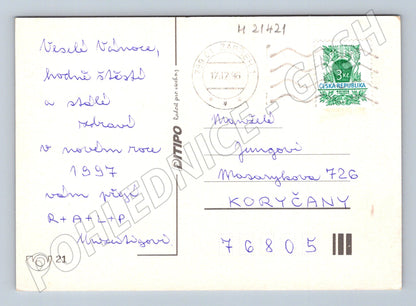 H 21421
Veselé Vánoce,
hodně štěstí
a stálé
zdraví
v novém roce
1997
vám přejí
R+A+L+P
DITIPO
3 Kč
ČESKÁ REPUBLIKA
Manželé
Jungovi
Masarykova 726
KORYČANY
76805
21
POHLEDNICE - CECH